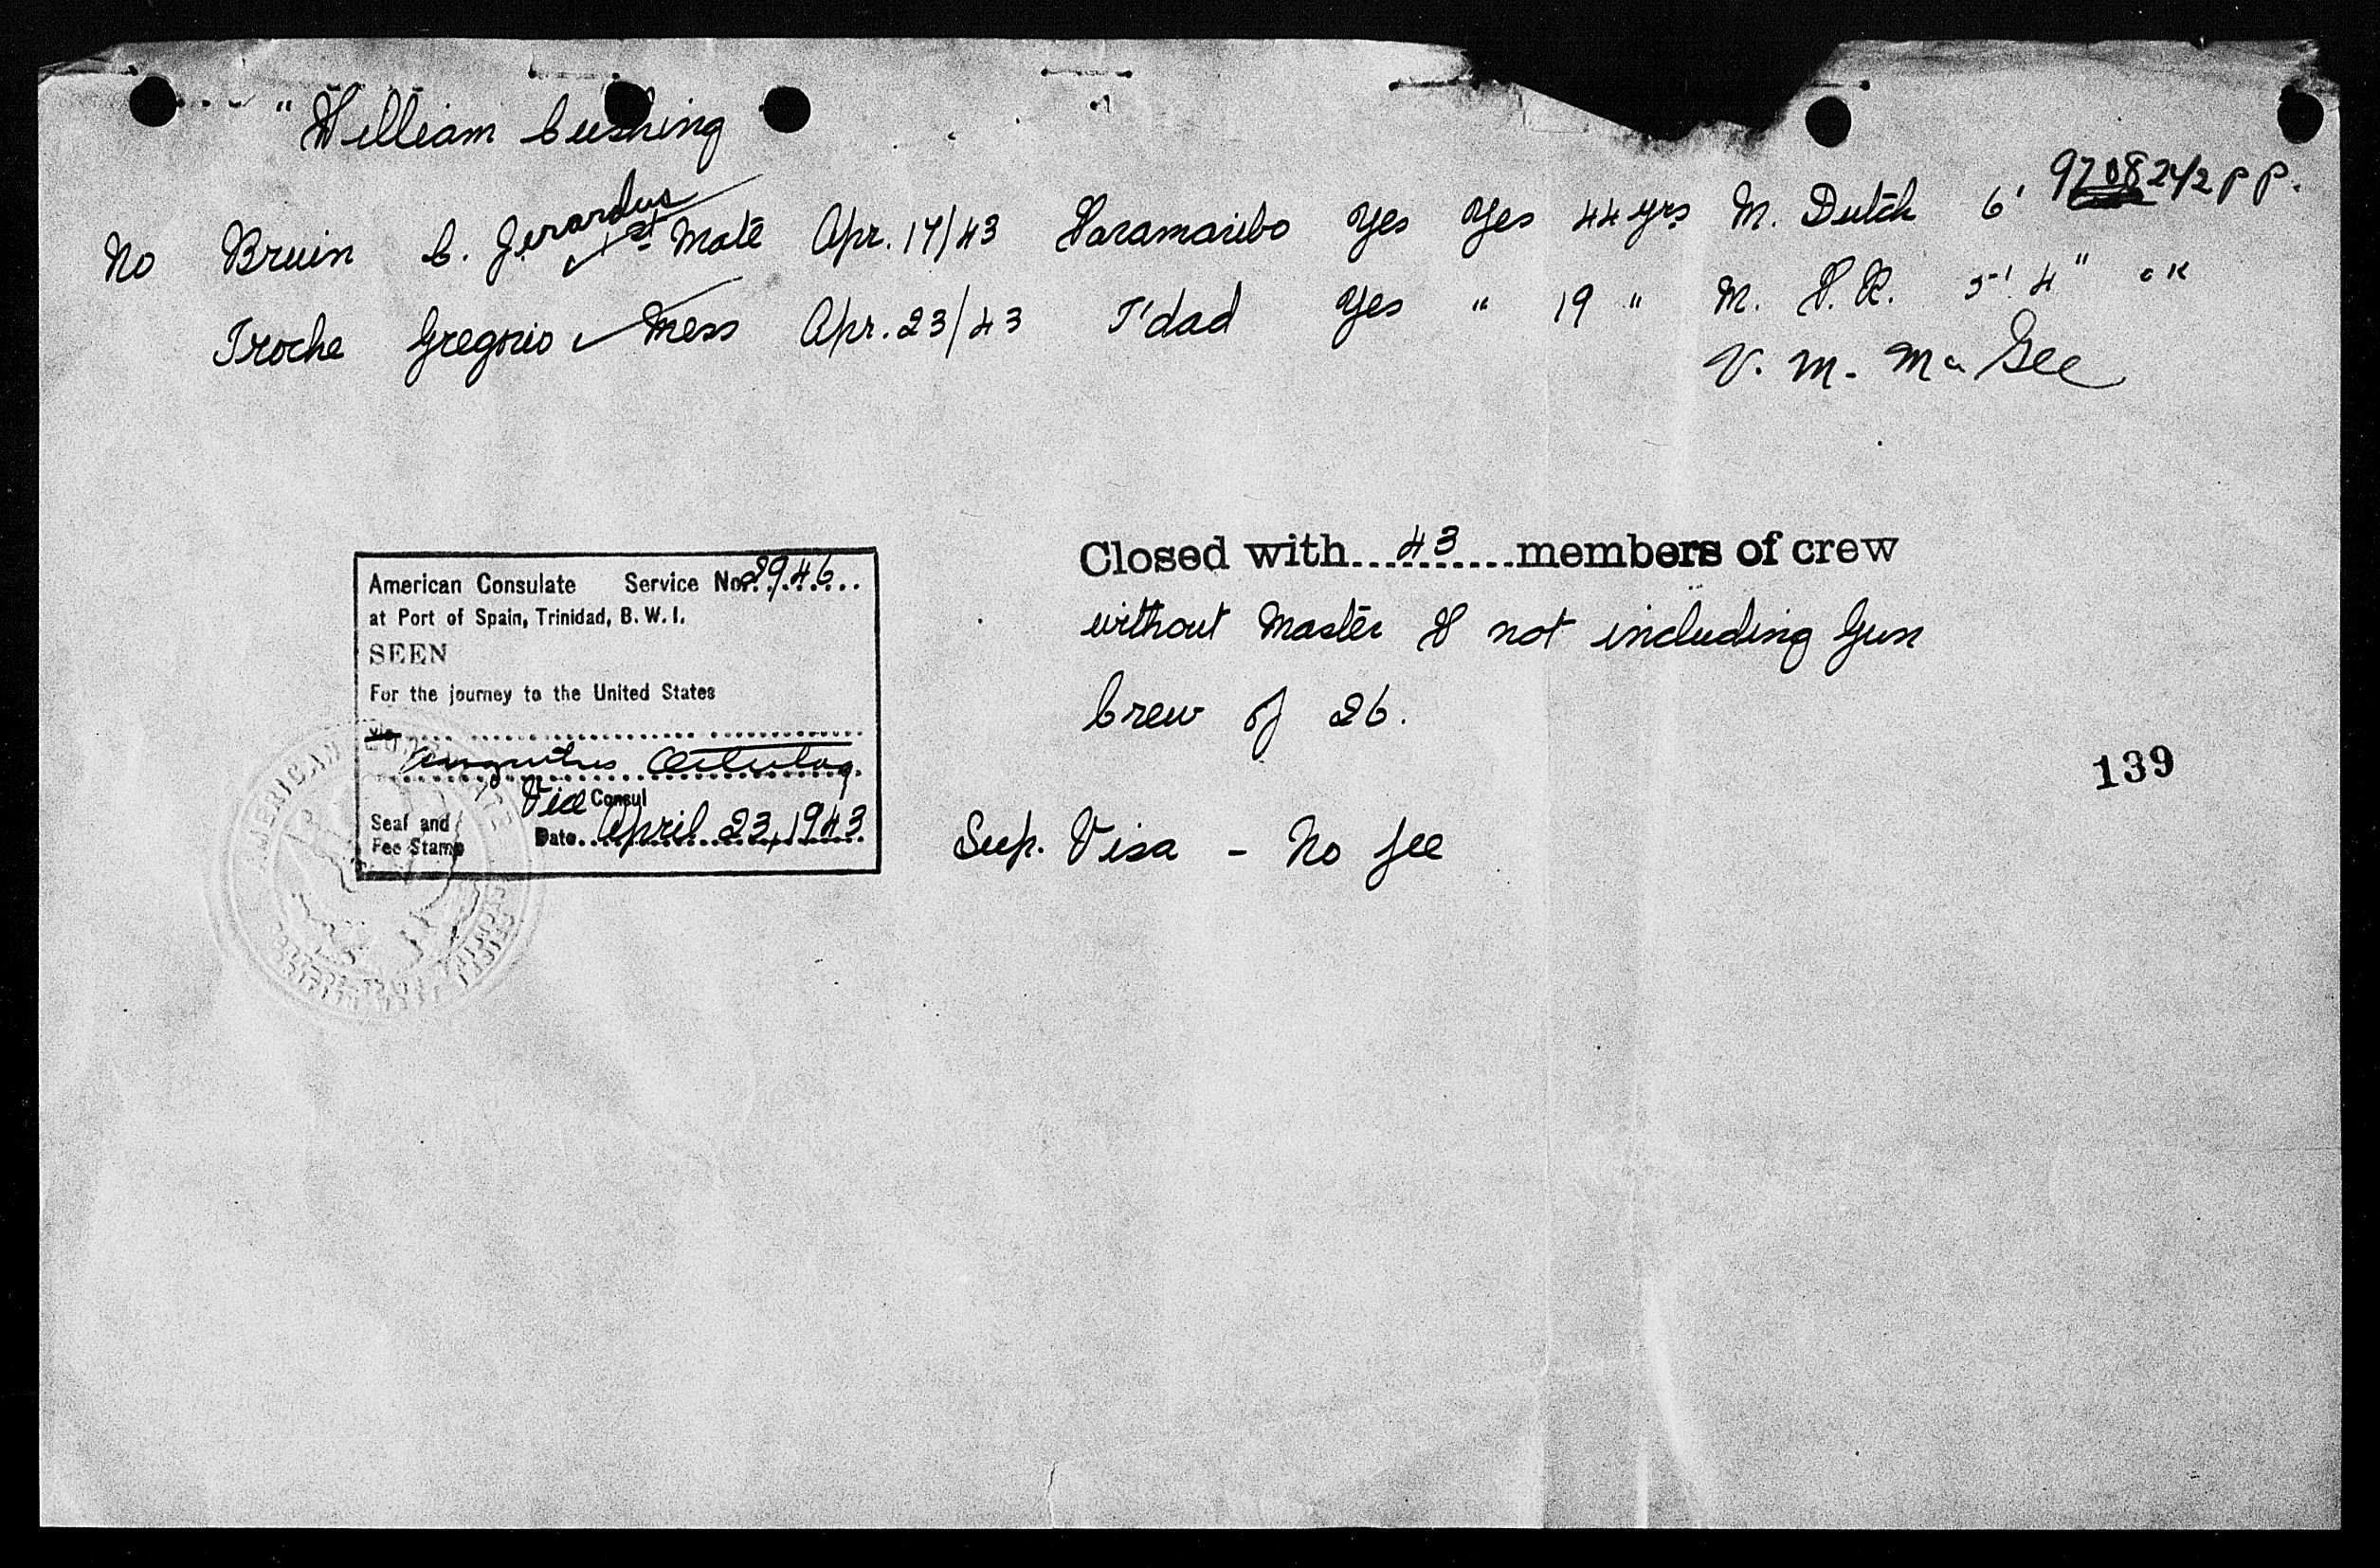 "William Cushing
No Bruin C. Gerardus 1st Mate Apr. 17/43 Paramaribo Yes Yes 44 yrs M. Dutch 6' 2 1/2 P P.
Troche Gregorio Mess Apr. 23/43 T'dad Yes " 19 " M. P.R. 5' 4" OK
V. M. McGee
Closed with....43....members of crew
without Master & not including Gun
Crew of 26.
American Consulate Service No. 2946
at Port of Spain, Trinidad, B. W. I.
SEEN
For the journey to the United States
via
Vice Consul
Seal and
Fee Stamp Date April 23, 1943
Sup. Visa - No fee
139